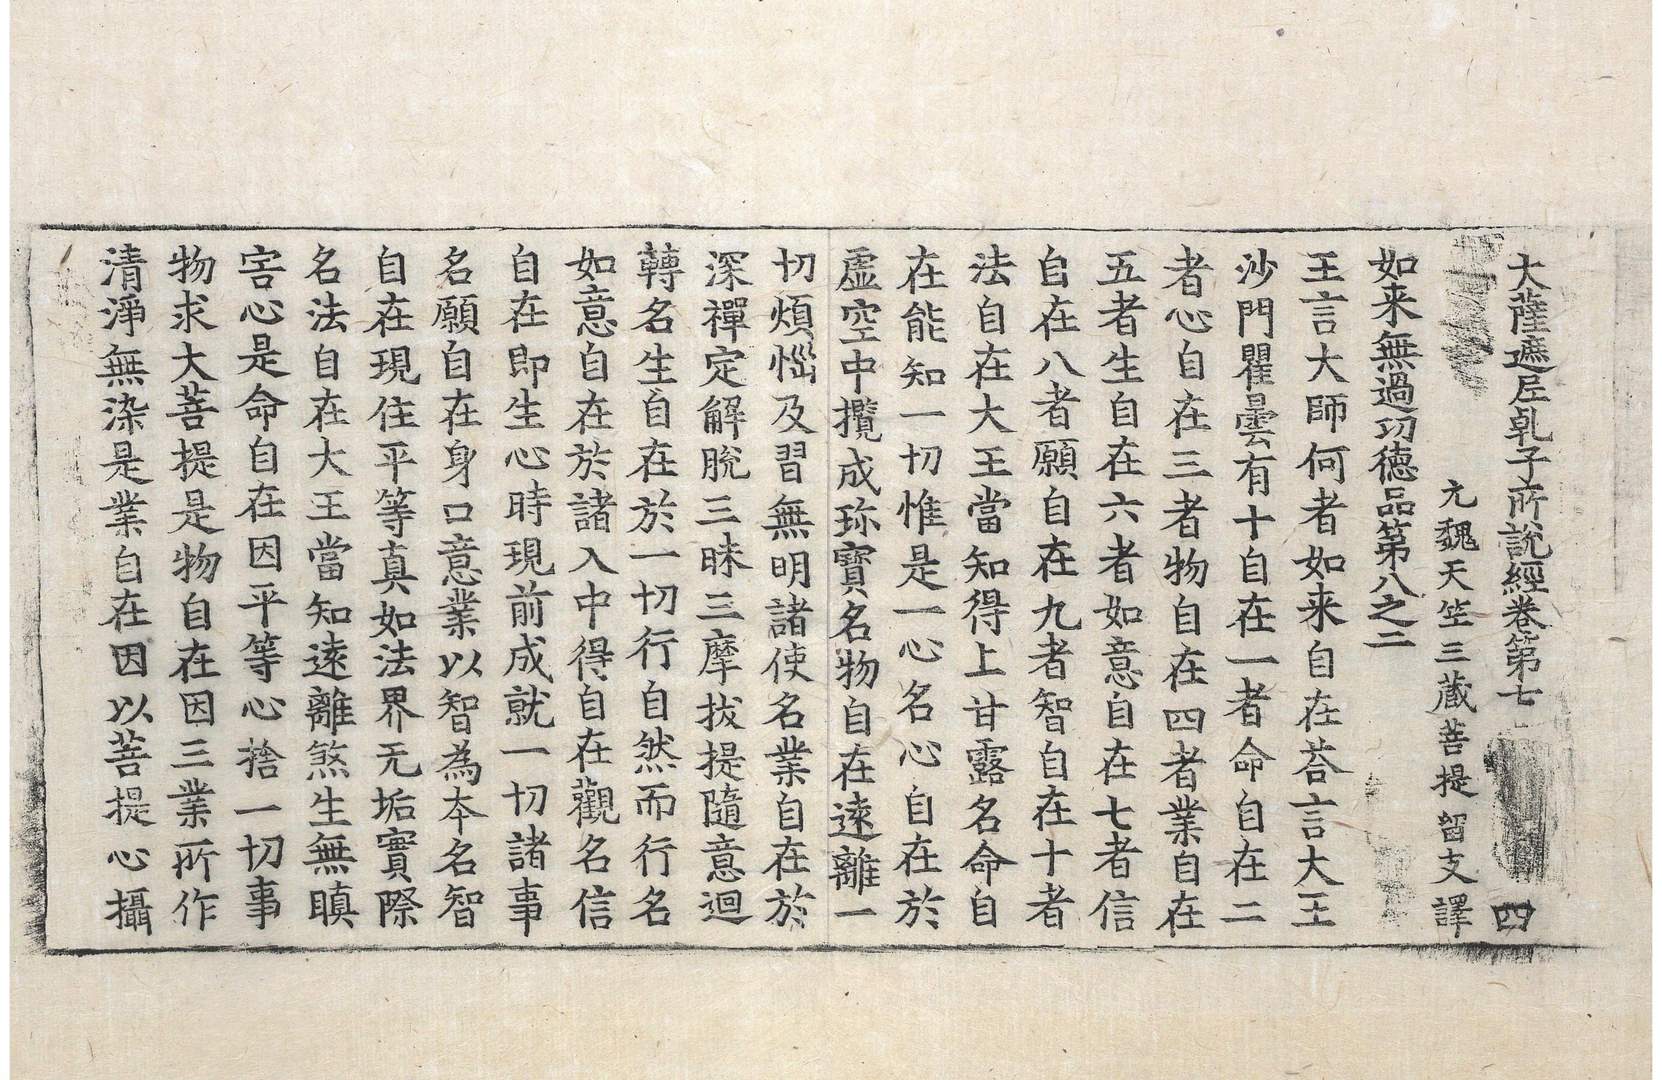 大薩遮尼乹子所說經卷第七　四
元魏天竺三藏菩提留支譯
如来無過功德品第八之二
王言大師何者如来自在荅言大王
沙門瞿曇有十自在一者命自在二
者心自在三者物自在四者業自在
五者生自在六者如意自在七者信
自在八者願自在九者智自在十者
法自在大王當知得上甘露名命自
在能知一切惟是一心名心自在於
虛空中攬成珎寶名物自在遠離一
切煩惱及習無明諸使名業自在於
深禪定解脫三昧三摩拔提隨意迴
轉名生自在於一切行自然而行名
如意自在於諸入中得自在觀名信
自在即生心時現前成就一切諸事
名願自在身口意業以智為本名智
自在現住平等真如法界无垢實際
名法自在大王當知遠離煞生無瞋
害心是命自在因平等心捨一切事
物求大菩提是物自在因三業所作
清淨無染是業自在因以菩提心攝